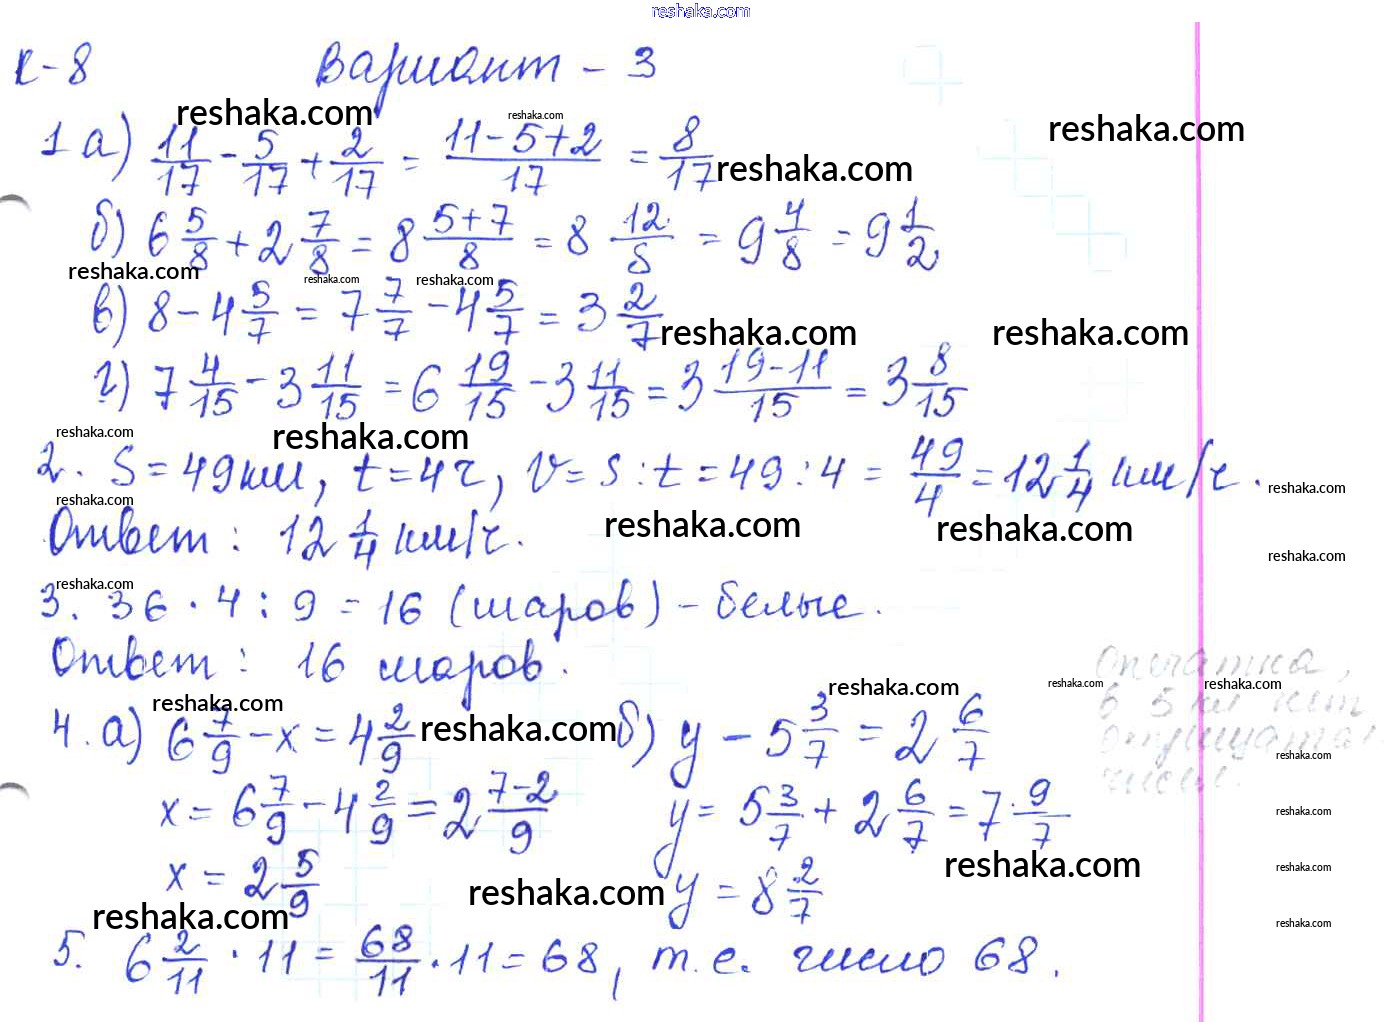 reshaka.com
К-8 Вариант - 3
reshaka.com reshaka.com reshaka.com
1 а) 11/17 - 5/17 + 2/17 = (11-5+2)/17 = 8/17 reshaka.com
б) 6 5/8 + 2 7/8 = 8 (5+7)/8 = 8 12/8 = 9 4/8 = 9 1/2
reshaka.com reshaka.com reshaka.com
в) 8 - 4 5/7 = 7 7/7 - 4 5/7 = 3 2/7 reshaka.com reshaka.com
г) 7 4/15 - 3 11/15 = 6 19/15 - 3 11/15 = 3 (19-11)/15 = 3 8/15
reshaka.com reshaka.com
2. S = 49 км, t = 4 ч, V = s : t = 49 : 4 = 49/4 = 12 1/4 км/ч. reshaka.com
reshaka.com reshaka.com reshaka.com
Ответ: 12 1/4 км/ч. reshaka.com
reshaka.com
3. 36 · 4 : 9 = 16 (шаров) - белые.
Ответ: 16 шаров. Опечатка,
reshaka.com reshaka.com reshaka.com reshaka.com
4. а) 6 7/9 - x = 4 2/9 reshaka.com б) y - 5 3/7 = 2 6/7 в 5 кл нет
reshaka.com
x = 6 7/9 - 4 2/9 = 2 (7-2)/9 y = 5 3/7 + 2 6/7 = 7 9/7 reshaka.com
x = 2 5/9 reshaka.com y = 8 2/7 reshaka.com reshaka.com
reshaka.com reshaka.com
5. 6 2/11 · 11 = 68/11 · 11 = 68, т.е. число 68.